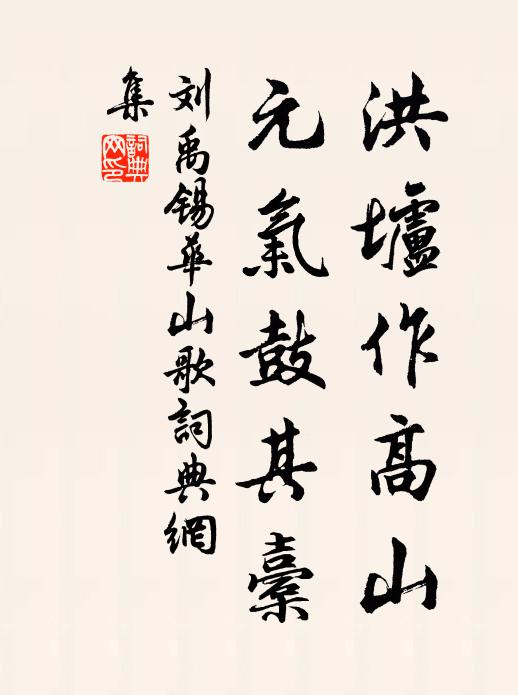 洪壚作高山
元氣鼓其橐
刘禹锡華山歌詞典網
集
詞典
网印